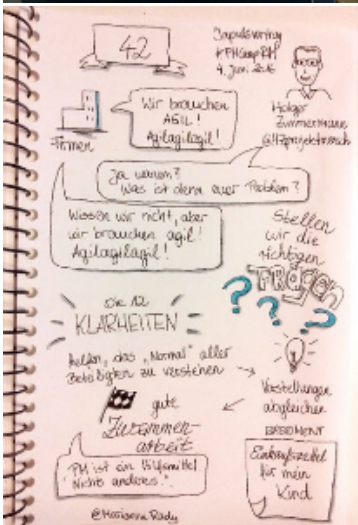 42
Impulsvortrag
#PMCampRM
4. Juni 2016
Holger
Zimmermann
@HZprojektmensch
Firmen
Wir brauchen
AGIL!
Agilagilagil!
Ja warum?
Was ist denn euer Problem?
Wissen wir nicht, aber
wir brauchen agil!
Agilagilagil!
Stellen
wir die
richtigen
FRAGEN
? ? ?
Die 12
KLARHEITEN
helfen, das "Normal" aller
Beteiligten zu verstehen
Vorstellungen
abgleichen
gute
Zusammen-
arbeit
"PM ist ein Hilfsmittel
Nichts anderes."
Einkaufszettel
für mein
Kind
@Marianne Rady